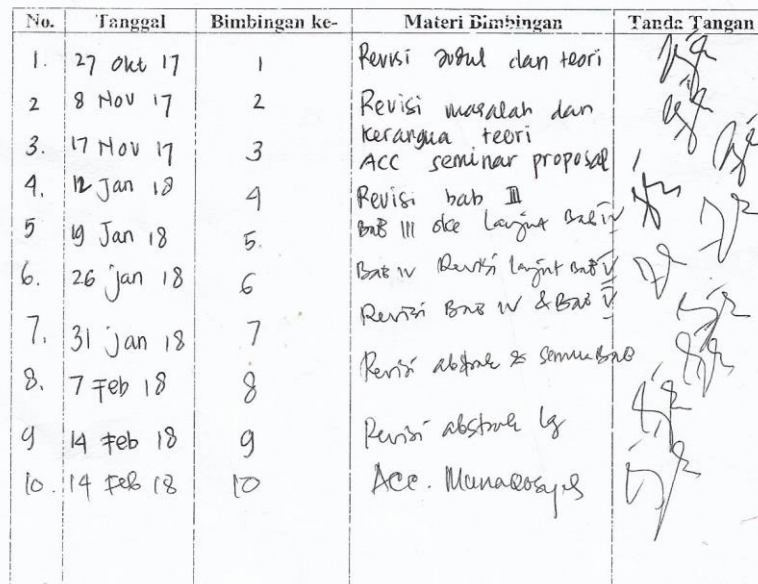 No. Tanggal Bimbingan ke- Materi Bimbingan Tanda Tangan
1. 27 okt 17 1 Revisi Judul dan teori
2 8 Nov 17 2 Revisi masalah dan
kerangka teori
3. 17 Nov 17 3 ACC seminar proposal
4. 12 Jan 18 4 Revisi bab III
5 19 Jan 18 5. BaB III oke lanjut BaB IV
6. 26 jan 18 6 BaB IV Revisi lanjut BaB V
7. 31 jan 18 7 Revisi BaB IV & BaB V
8. 7 Feb 18 8 Revisi abstrak & semua BaB
9 14 Feb 18 9 Revisi abstrak lg
10. 14 Feb 18 10 Acc. Munaqosyah